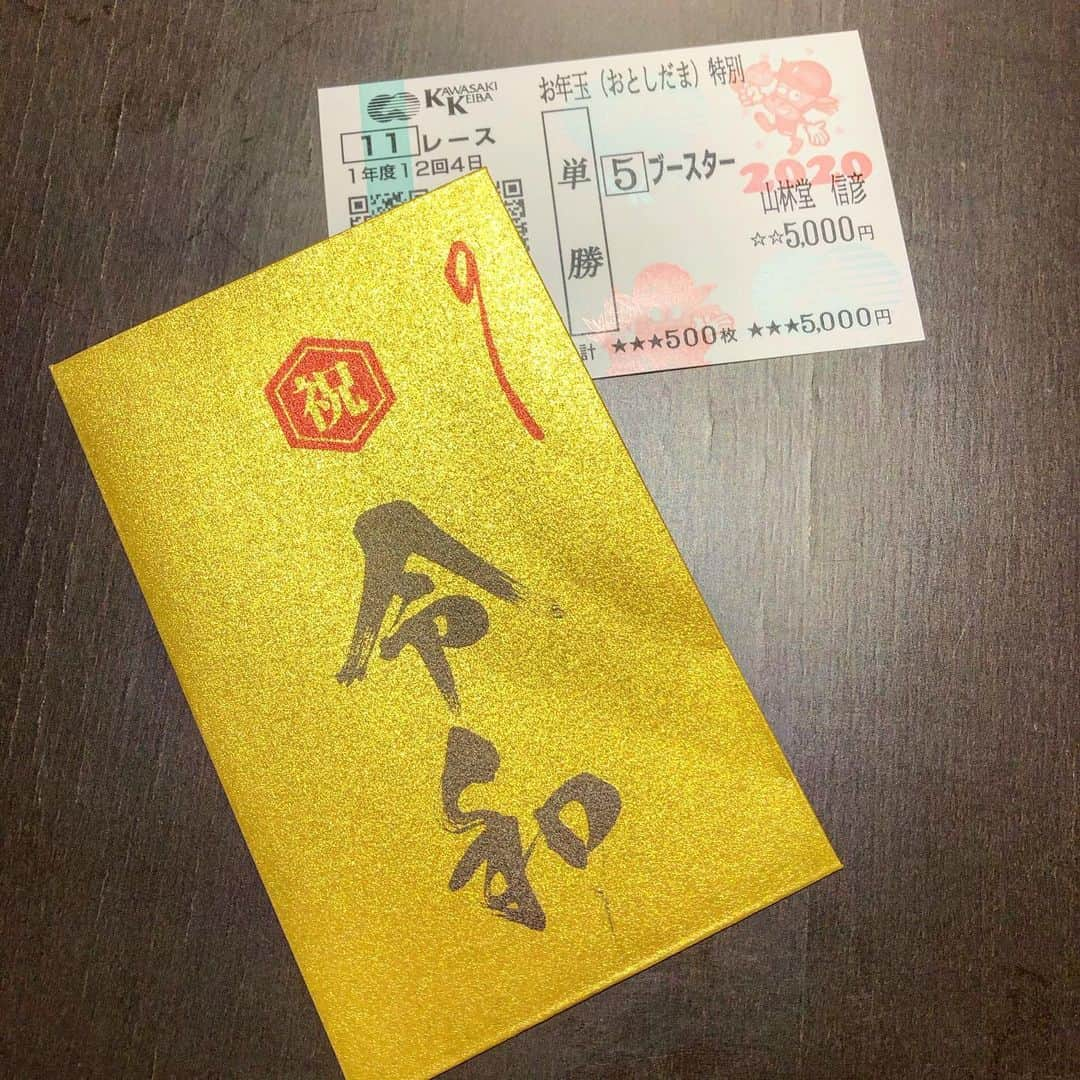 KAWASAKI
KEIBA
お年玉（おとしだま）特別
11レース
1年度12回4日
単勝
5 ブースター
2020
山林堂 信彦
☆☆5,000円
計 ★★★500枚 ★★★5,000円
祝
令和